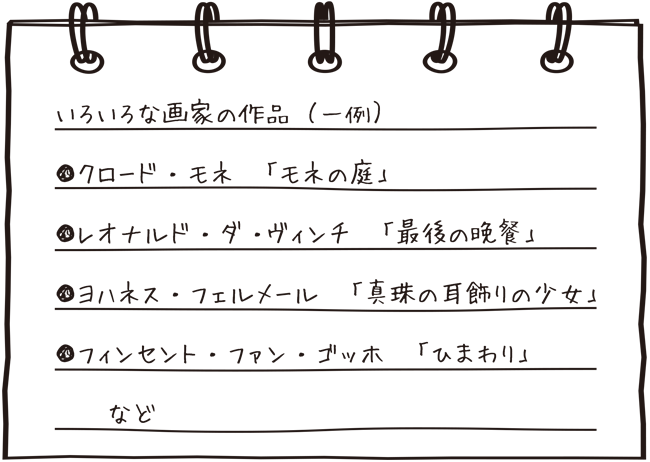 いろいろな画家の作品（一例）
●クロード・モネ　「モネの庭」
●レオナルド・ダ・ヴィンチ　「最後の晩餐」
●ヨハネス・フェルメール　「真珠の耳飾りの少女」
●フィンセント・ファン・ゴッホ　「ひまわり」
など